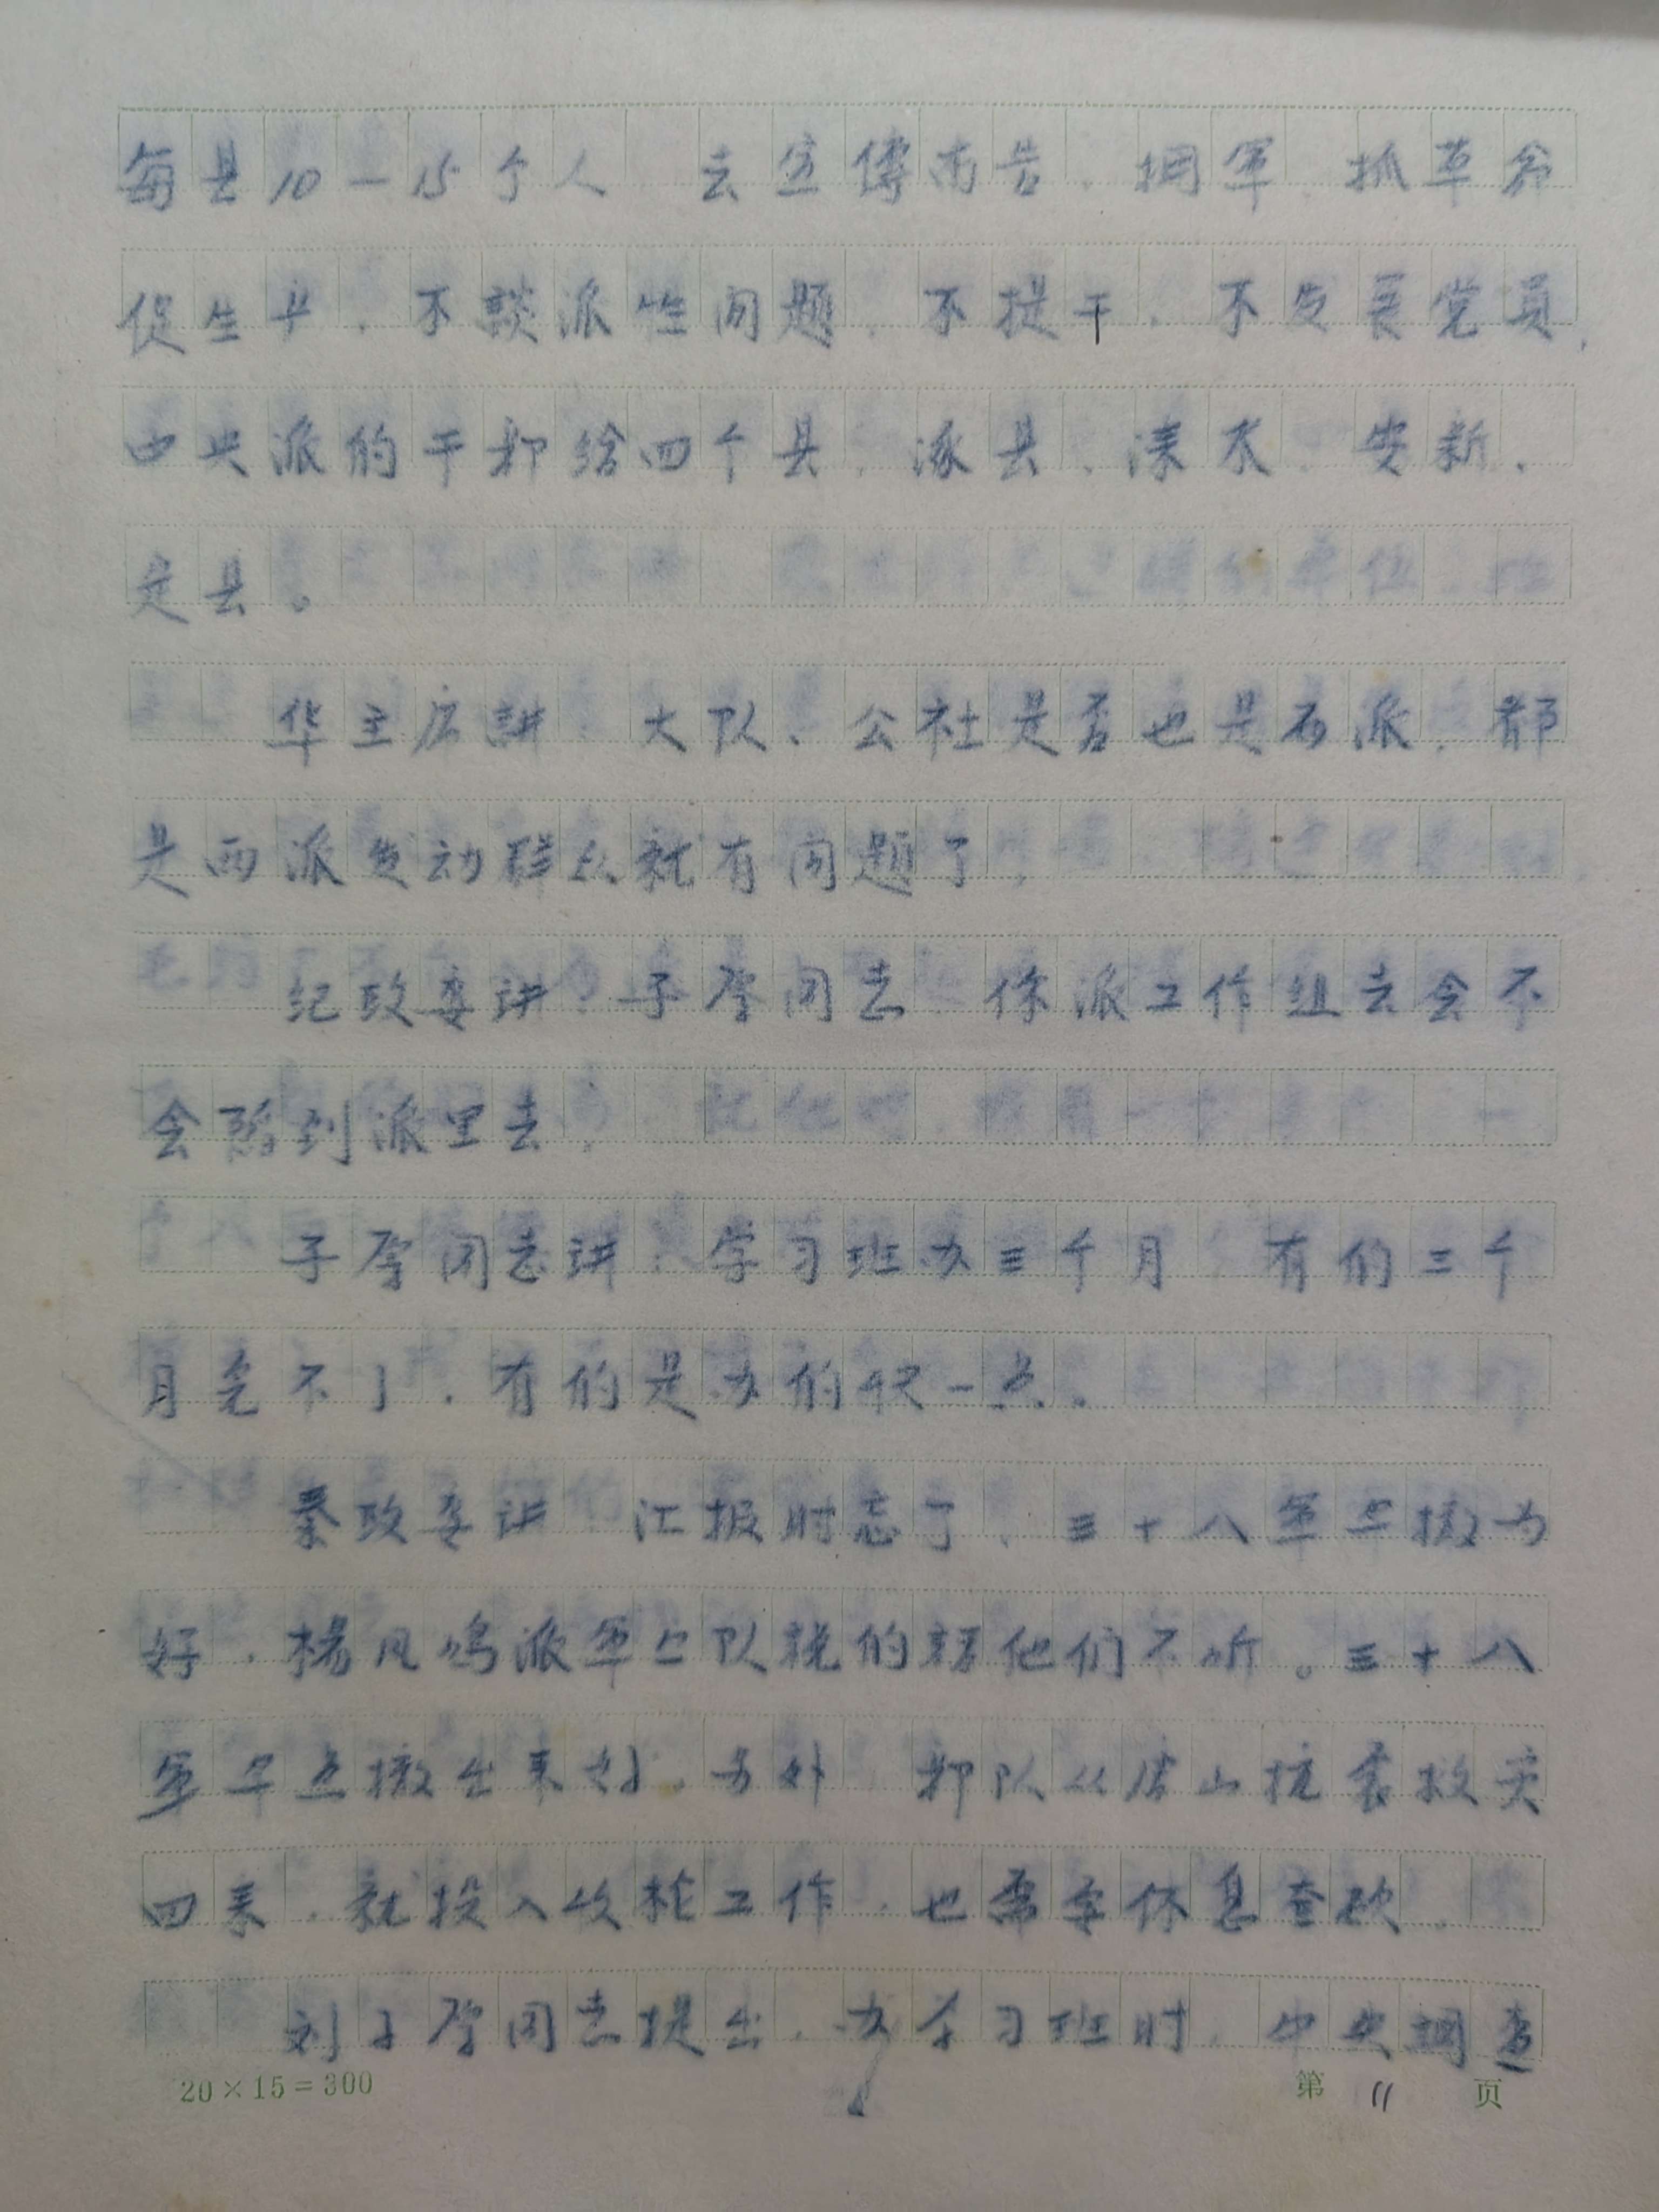 每县10—15个人，去宣傳布告、拥军、抓革命
促生产，不談派性问题，不提干，不发展党员，
中央派的干部给四个县，涿县、涞水、安新、
定县。
华主席講：大队、公社是否也是两派，都
是两派发动群众就有问题了，
纪政委讲：子厚同志，你派工作组去会不
会蹓到派里去，
子厚同志讲：学习班办三个月，有的三个
月完不了，有的是办的快一点。
秦政委讲：汇报时忘了，三十八军早撤为
好，楊风鸣派军区部队説的話他们不听。三十八
军早点撤出来好。另外，部队从唐山抗震救灾
回来，就投入收枪工作，也需要休息整砍，
刘子厚同志提出，办学习班时，中央调查
20×15=300
第 11 页